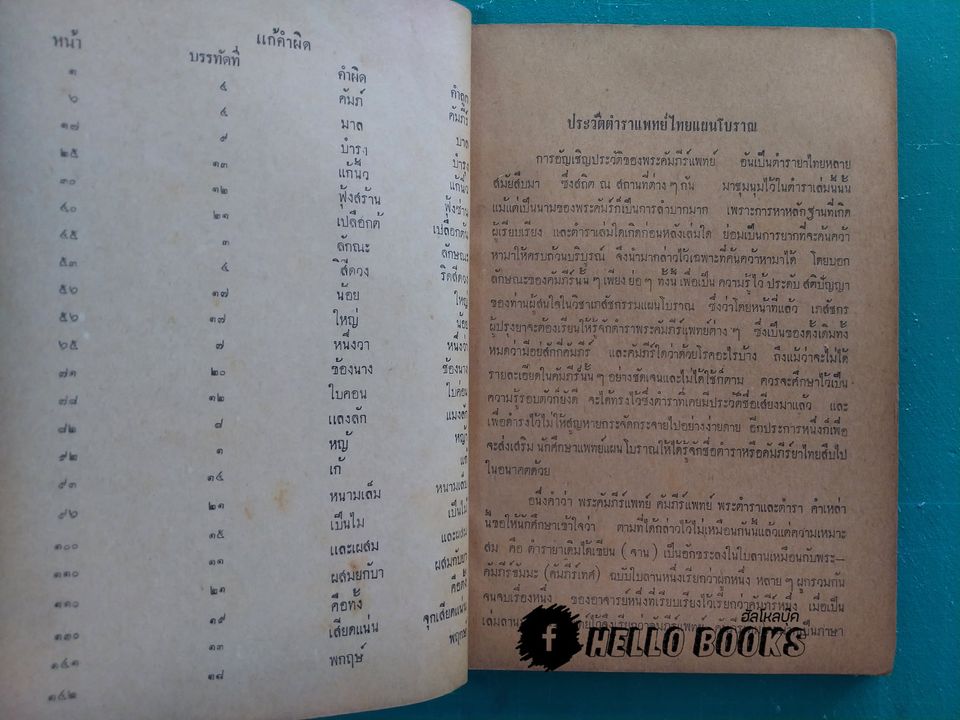 แก้คำผิด
หน้า บรรทัดที่ คำผิด คำถูก
๑ ๔ คัมภ์ คัมภีร์
๖ ๔ มาล บาล
๑๗ ๙ บำรุง บำรุง
๒๕ ๑๓ แก้นิ่ว แก้นิ่ว
๓๐ ๑๒ ฟุ้งสร้าน ฟุ้งซ่าน
๔๐ ๒๑ เปลือกต้ เปลือกต้น
๔๕ ๓ ลักณะ ลักษณะ
๕๓ ๔ สิสีดวง ริดสีดวง
๕๖ ๑๗ น้อย ใหญ่
๕๖ ๑๗ ใหญ่ น้อย
๖๕ ๗ หนึ่งวา หนึ่งว่า
๗๑ ๒๐ ข้องนาง ช้องนาง
๗๘ ๑๒ ใบคอน ใบค่อน
๘๒ ๘ แลงลัก แมงลัก
๙๒ ๑ หญั หญ้า
๙๓ ๑๔ เก้ แก้
๙๖ ๒๑ หนามเล็ม หนามเล็บ
๑๐๐ ๑๕ เป็นไม เป็นไม้
๑๑๐ ๑๑ และเผสม และผสม
๑๑๐ ๒๑ ผสมยกับา ผสมกับยา
๑๓๐ ๑๙ คือทั้ง คือตั้ง
๑๔๑ ๑๓ เสียดแน่น จุกเสียดแน่น
๑๔๒ ๑๘ พกฤษ์ พฤกษ์
ประวัติตำราแพทย์ไทยแผนโบราณ
การอัญเชิญประวัติของพระคัมภีร์แพทย์ อันเป็นตำรายาไทยหลาย
สมัยสืบมา ซึ่งสถิต ณ สถานที่ต่าง ๆ กัน มาชุมนุมไว้ในตำราเล่มนี้นั้น
แม้แต่เป็นนามของพระคัมร์ก็เป็นการลำบากมาก เพราะการหาหลักฐานที่เกิด
ผู้เรียบเรียง และตำราเล่มใดเกิดก่อนหลังเล่มใด ย่อมเป็นการยากที่จะค้นคว้า
หามาให้ครบถ้วนบริบูรณ์ จึงนำมากล่าวไว้เฉพาะที่ค้นคว้าหามาได้ โดยบอก
ลักษณะของคัมภีร์นั้น ๆ เพียง ย่อ ๆ ทั้งนี้ เพื่อเป็น ความรู้ ไว้ ประดับ สติปัญญา
ของท่านผู้สนใจในวิชาเภสัชกรรมแผนโบราณ ซึ่งว่าโดยหน้าที่แล้ว เภสัชกร
ผู้ปรุงยาจะต้องเรียนให้รู้จักตำราพระคัมภีร์แพทย์ต่าง ๆ ซึ่งเป็นของดั้งเดิมทั้ง
หมดว่ามีอยู่สักกี่คัมภีร์ และคัมภีร์ใดว่าด้วยโรคอะไรบ้าง ถึงแม้ว่าจะไม่ได้
รายละเอียดในคัมภีร์นั้น ๆ อย่างชัดเจนและไม่ได้ใช้ก็ตาม ควรจะศึกษาไว้เป็น
ความรู้รอบตัวก็ยังดี จะได้ทรงไว้ซึ่งตำราที่เคยมีประวัติชื่อเสียงมาแล้ว และ
เพื่อดำรงไว้ไม่ให้สูญหายกระจัดกระจายไปอย่างง่ายดาย อีกประการหนึ่งก็เพื่อ
จะส่งเสริม นักศึกษาแพทย์แผนโบราณให้ได้รู้จักชื่อตำราหรือคัมภีร์ยาไทยสืบไป
ในอนาคตด้วย
อนึ่งคำว่า พระคัมภีร์แพทย์ คัมภีร์แพทย์ พระตำราและตำรา คำเหล่า
นี้ขอให้นักศึกษาเข้าใจว่า ตามที่ได้กล่าวไว้ไม่เหมือนกันนั้นแล้วแต่ความเหมาะ
สม คือ ตำรายาเดิมได้เขียน ( จาน ) เป็นอักขระลงในใบลานเหมือนกับพระ–
คัมภีร์ธัมมะ ( คัมภีร์เทศ ) ฉบับใบลานหนึ่งเรียกว่าผูกหนึ่ง หลาย ๆ ผูกรวมกัน
จนจบเรื่องหนึ่ง ของอาจารย์หนึ่งที่เรียบเรียงไว้เรียกว่าคัมภีร์หนึ่ง เมื่อเป็น
เล่มถาน
เป็นภาษา
ฮัลโหลบุ๊ค
f HELLO BOOKS